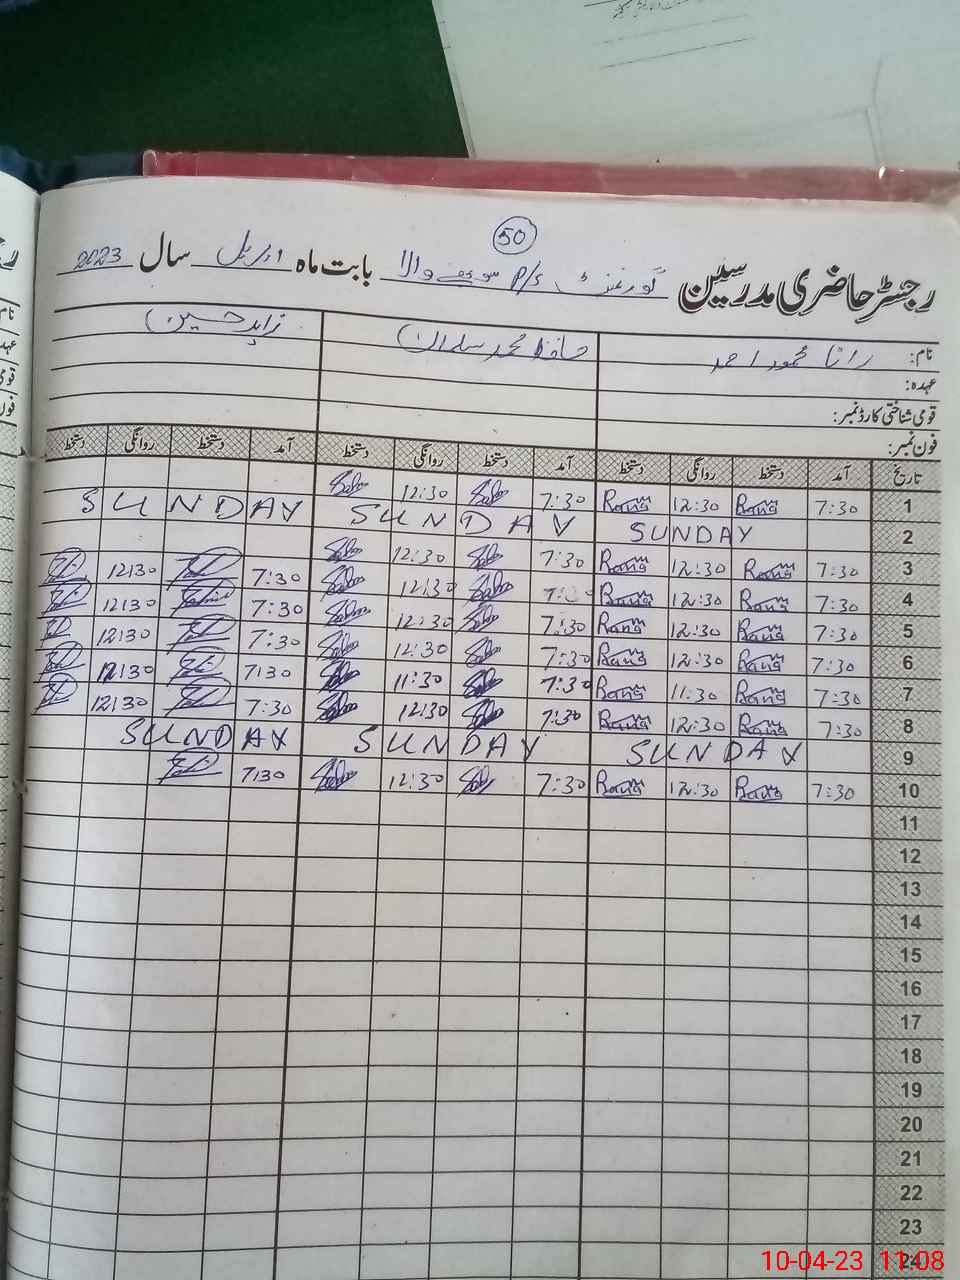 50
رجسٹر حاضری مدرسین گورنمنٹ P/S والا بابت ماہ اپریل سال 2023
نام: رانا محمود احمد حافظ محمد سلمان زاہد حسین
عہدہ:
قومی شناختی کارڈ نمبر:
فون نمبر:
تاریخ آمد دستخط روانگی دستخط آمد دستخط روانگی دستخط آمد دستخط روانگی دستخط
1 7:30 Rana 12:30 Rana 7:30 12:30
2 SUNDAY SUNDAY SUNDAY
3 7:30 Rana 12:30 Rana 7:30 12:30 7:30 12:30
4 7:30 Rana 12:30 Rana 12:30 7:30 12:30
5 7:30 Rana 12:30 Rana 7:30 12:30 7:30 12:30
6 7:30 Rana 12:30 Rana 7:30 12:30 7:30 12:30
7 7:30 Rana 11:30 Rana 7:30 11:30 7:30 12:30
8 7:30 Rana 12:30 Rana 7:30 12:30
9 SUNDAY SUNDAY SUNDAY
10 7:30 Rana 12:30 Rana 7:30 12:30 7:30
11
12
13
14
15
16
17
18
19
20
21
22
23
24
10-04-23 11:08